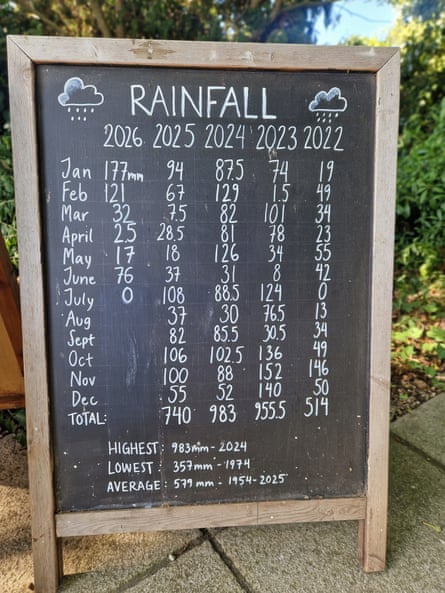 RAINFALL
2026 2025 2024 2023 2022
Jan 177mm 94 87.5 74 19
Feb 121 67 129 1.5 49
Mar 32 7.5 82 101 34
April 2.5 28.5 81 78 23
May 17 18 126 34 55
June 76 37 31 8 42
July 0 108 88.5 124 0
Aug 37 30 76.5 13
Sept 82 85.5 30.5 34
Oct 106 102.5 136 49
Nov 100 88 152 146
Dec 55 52 140 50
TOTAL: 740 983 955.5 514
HIGHEST: 983mm - 2024
LOWEST: 357mm - 1974
AVERAGE: 579mm - 1954-2025